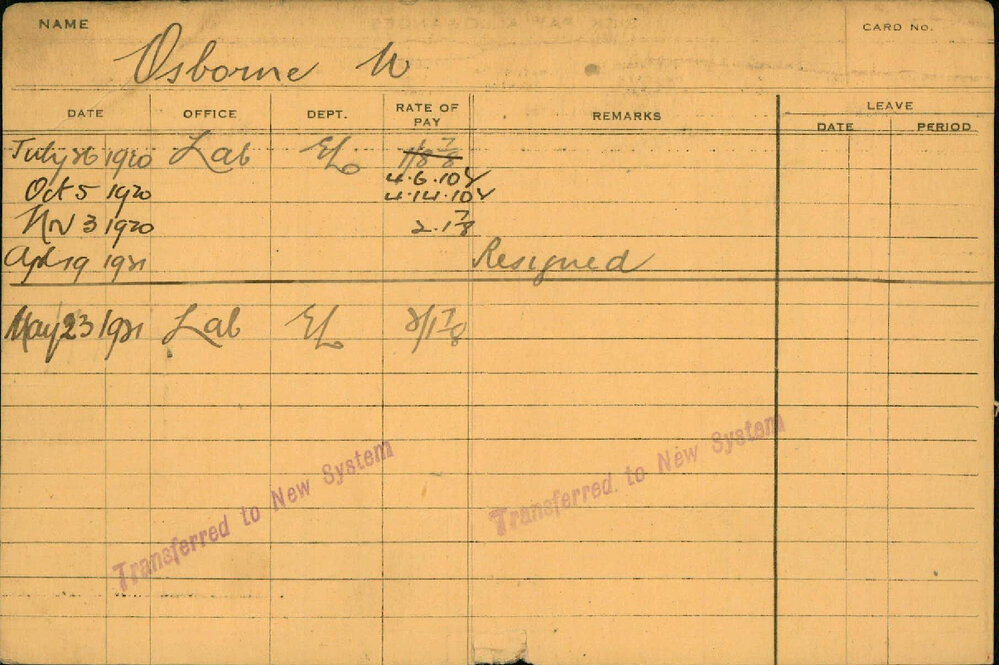 NAME
CARD No.
Osborne W
DATE OFFICE DEPT. RATE OF PAY REMARKS LEAVE
DATE PERIOD
July 26 1920 Lab EL
4.6.10 Y
Oct 5 1920 4.14.10 Y
Nov 3 1920 2.1 7/8
Apl 19 1921 Resigned
May 23 1921 Lab EL 2/1 7/8
Transferred to New System
Transferred to New System